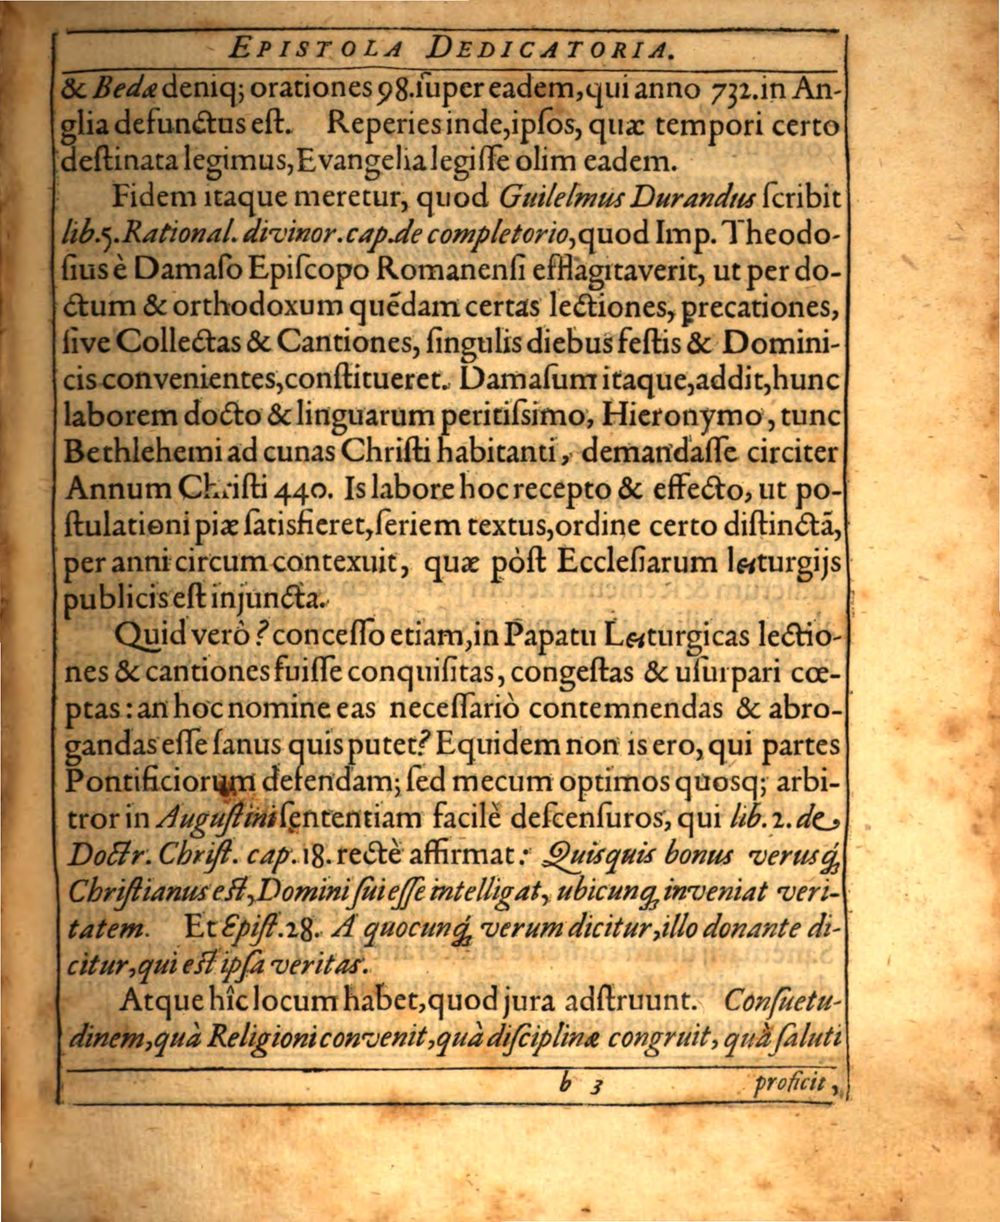 EPISTOLA DEDICATORIA.
& Bedæ deniq; orationes 98. ſuper eadem, qui anno 732. in An-
glia defunctus eſt. Reperies inde, ipſos, quæ tempori certo
deſtinata legimus, Evangelia legiſſe olim eadem.
Fidem itaque meretur, quod Guilelmus Durandus ſcribit
lib. 5. Rational. divinor. cap. de completorio, quod Imp. Theodo-
ſius è Damaſo Epiſcopo Romanenſi efflagitaverit, ut per do-
ctum & orthodoxum quēdam certas lectiones, precationes,
ſive Collectas & Cantiones, ſingulis diebus feſtis & Domini-
cis convenientes, conſtitueret. Damaſum itaque, addit, hunc
laborem docto & linguarum peritiſsimo, Hieronymo, tunc
Bethlehemi ad cunas Chriſti habitanti, demandaſſe circiter
Annum Chriſti 440. Is labore hoc recepto & effecto, ut po-
ſtulationi piæ ſatisfieret, ſeriem textus, ordine certo diſtinctã,
per anni circum contexuit, quæ pòſt Eccleſiarum leιturgijs
publicis eſt injuncta.
Quid verò? conceſſo etiam, in Papatu Leιturgicas lectio-
nes & cantiones fuiſſe conquiſitas, congeſtas & uſurpari cœ-
ptas: an hoc nomine eas neceſſariò contemnendas & abro-
gandas eſſe ſanus quis putet? Equidem non is ero, qui partes
Pontificiorum defendam; ſed mecum optimos quosq; arbi-
tror in Auguſtini ſententiam facilè deſcenſuros, qui lib. 2. de
Doctr. Chriſt. cap. 18. rectè affirmat: Quisquis bonus verusq́;
Chriſtianus eſt, Domini ſui eſſe intelligat, ubicunq; inveniat veri-
tatem. Et Epiſt. 28. A quocunq́; verum dicitur, illo donante di-
citur, qui eſt ipſa veritas.
Atque hîc locum habet, quod jura adſtruunt. Conſuetu-
dinem, quà Religioni convenit, quà diſciplinæ congruit, quà ſaluti
b 3 proficit,